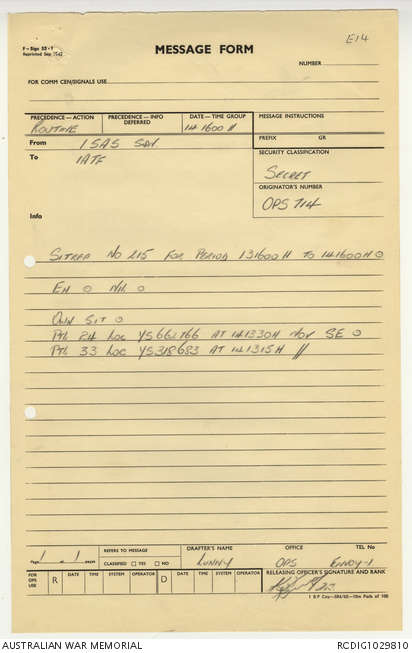 F-Sigs 52-1
Reprinted Sep 1962
MESSAGE FORM
E14
NUMBER
FOR COMM CEN/SIGNALS USE
PRECEDENCE—ACTION
ROUTINE
PRECEDENCE—INFO
DEFERRED
DATE—TIME GROUP
141600H
MESSAGE INSTRUCTIONS
PREFIX GR
From 1 SAS SQN
To 1ATF
SECURITY CLASSIFICATION
SECRET
ORIGINATOR'S NUMBER
OPS 714
Info
SITREP NO 215 FOR PERIOD 131600H TO 141600H O
EN O NIL O
OWN SIT O
PTL 24 LOC YS662766 AT 141330H MOV SE O
PTL 33 LOC YS318683 AT 141315H //
Page 1 of 1 pages
REFERS TO MESSAGE
CLASSIFIED YES NO
DRAFTER'S NAME
LUNNY
OFFICE
OPS
TEL No
ENVOY-1
FOR OPS USE
R
DATE TIME SYSTEM OPERATOR
D
DATE TIME SYSTEM OPERATOR
RELEASING OFFICER'S SIGNATURE AND RANK
AUSTRALIAN WAR MEMORIAL
RCDIG1029810